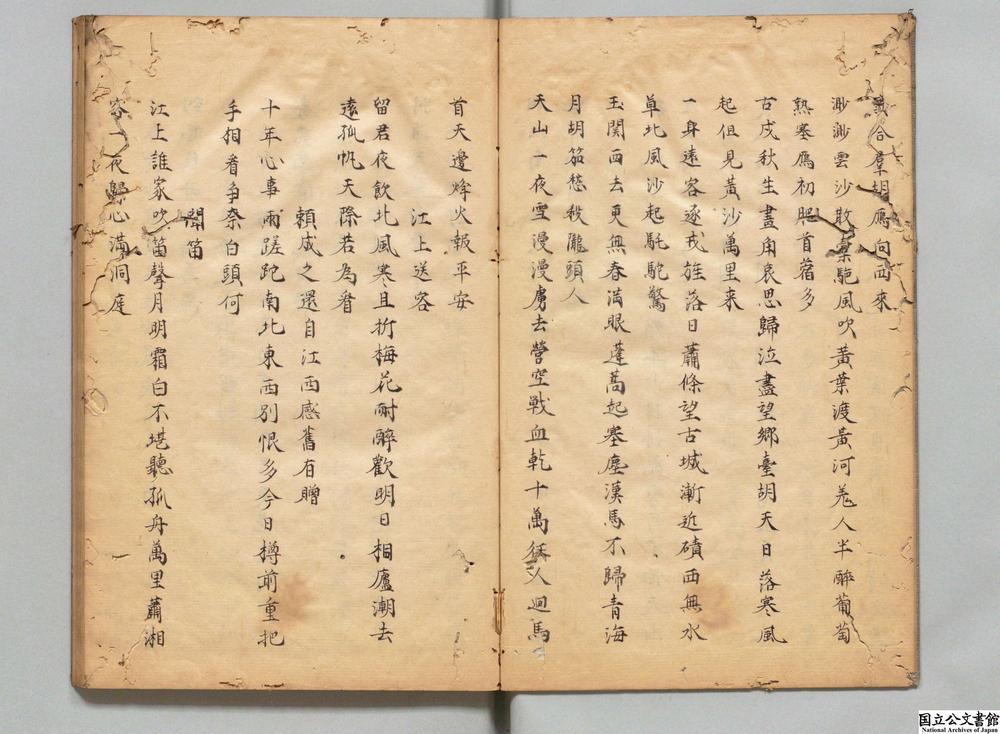 合羣胡鴈向西來
渺渺雲沙散橐駞風吹黃葉渡黃河羌人半醉葡萄
熟塞鴈初肥首蓿多
古戍秋生畫角哀思歸泣盡望鄉臺胡天日落寒風
起但見黃沙萬里来
一身遠客逐戎旌落日蕭條望古城漸近磧西無水
草北風沙起駝驚
玉関西去更無春滿眼蓬蒿起塞塵漢馬不歸青海
月胡笳愁殺隴頭人
天山一夜雪漫漫虜去營空戦血乾十萬人迴馬
首天邊烽火報平安
江上送客
留君夜飲北風寒且折梅花耐醉歡明日相廬潮去
遠孤帆天際若為看
賴成之還自江西感舊有贈
十年心事兩蹉跎南北東西別恨多今日樽前重把
手相看爭奈白頭何
聞笛
江上誰家吹笛聲月明霜白不堪聽孤舟萬里蕭湘
客一夜歸心滿洞庭
国立公文書館
National Archives of Japan